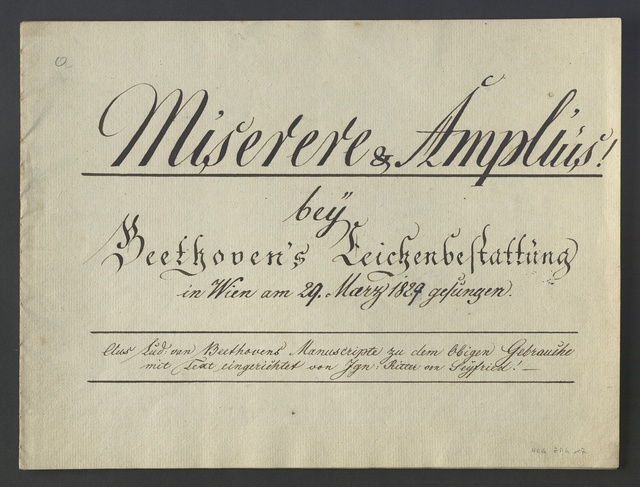 Miserere & Amplius!
beÿ
Beethoven's Leichenbestattung
in Wien am 29. Maerz 1827 gesungen.
Aus Lud: van Beethovens Manuscripte zu dem obigen Gebrauche
mit Text eingerichtet von Ign: Ritter von Seyfried! —